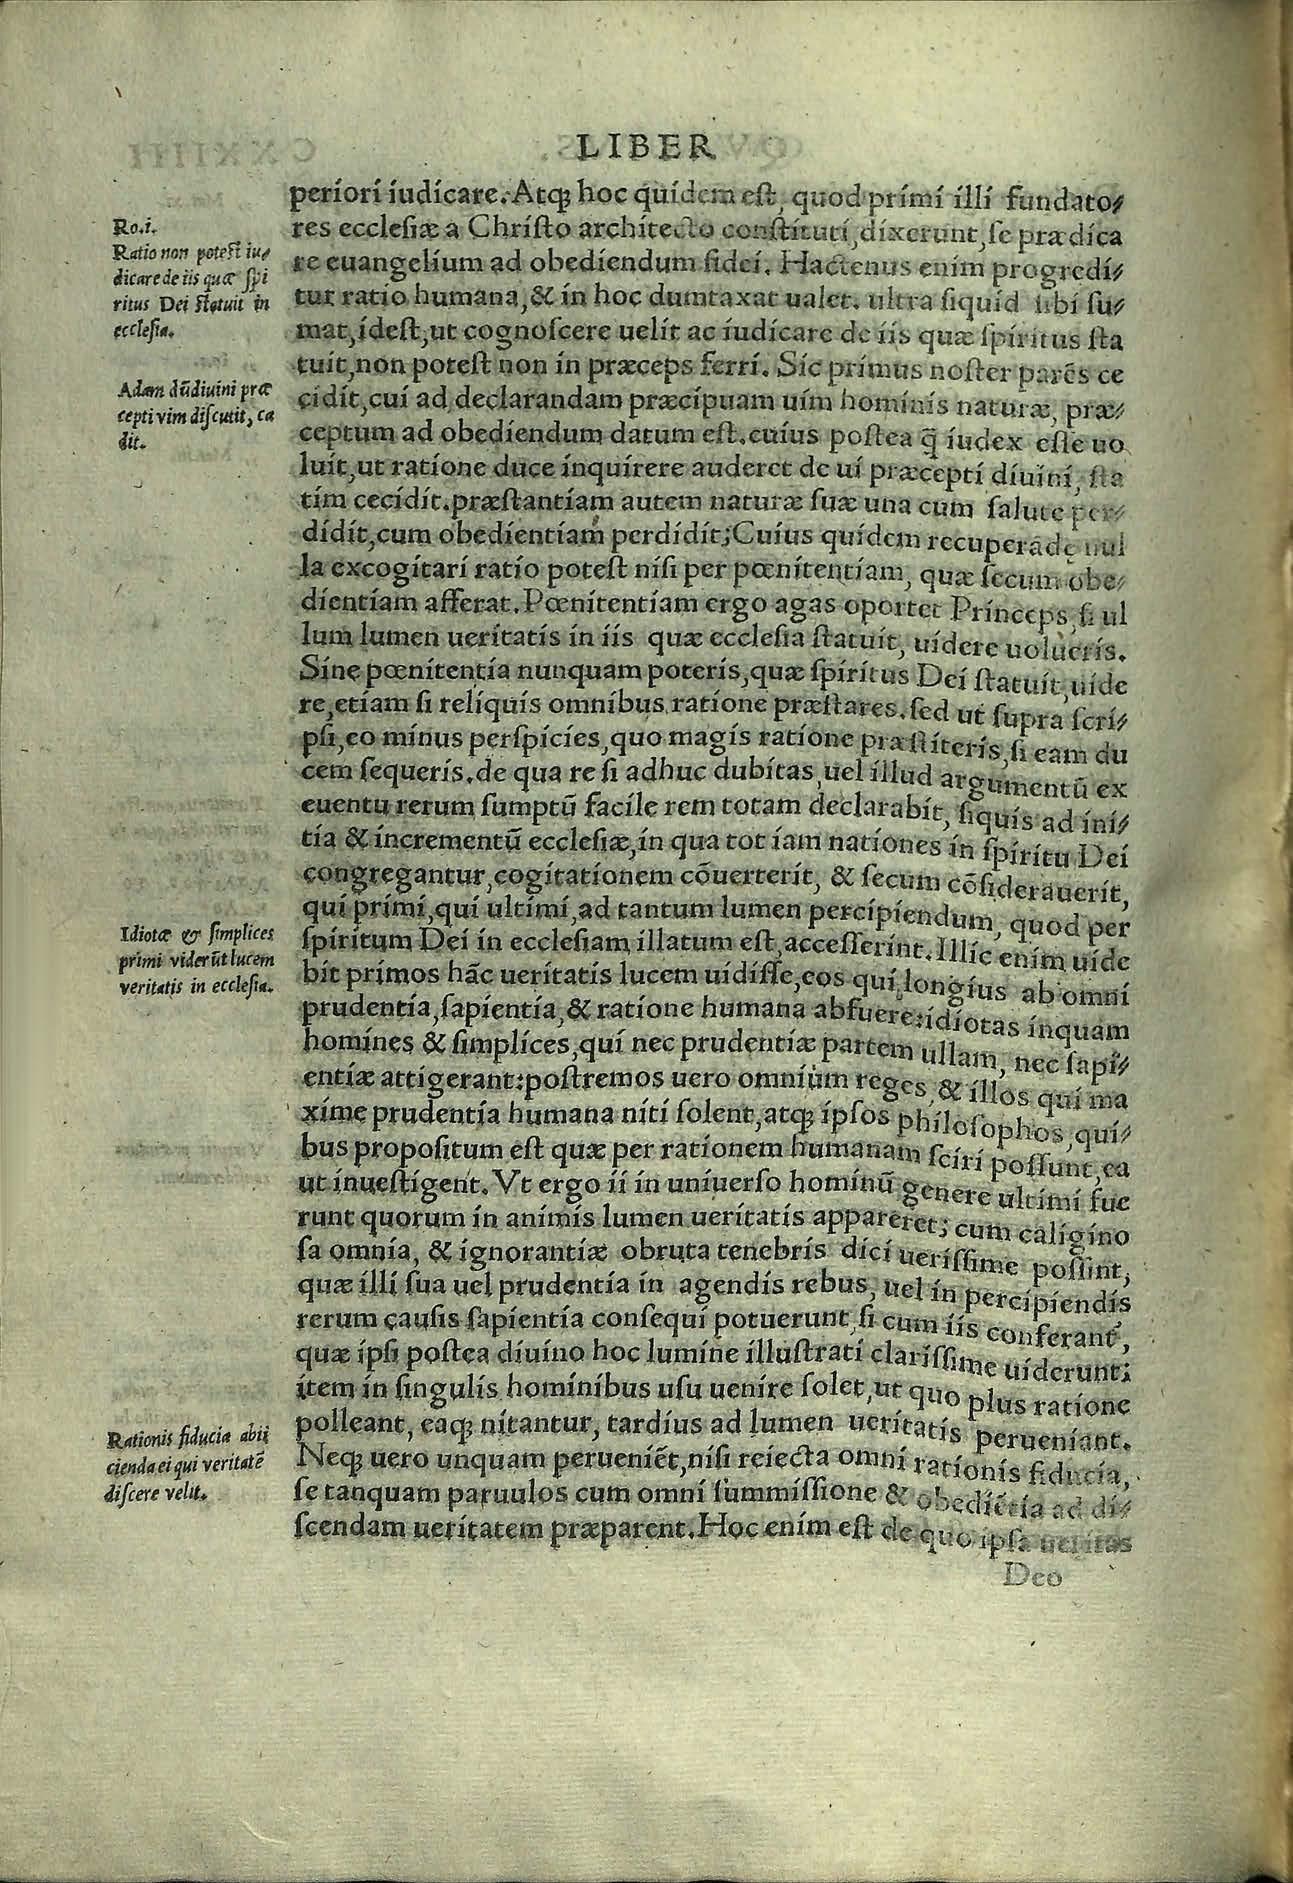 LIBER
periori iudicare. Atq; hoc quidem est, quod primi illi fundato⸗
res ecclesiæ a Christo architecto constituti, dixerunt, se prædica
re euangelium ad obediendum fidei. Hactenus enim progredi⸗
tur ratio humana, & in hoc dumtaxat ualet. ultra siquid sibi su⸗
mat, idest, ut cognoscere uelit ac iudicare de iis quæ spiritus sta
tuit, non potest non in præceps ferri. Sic primus noster parēs ce
cidit, cui ad declarandam præcipuam uim hominis naturæ, præ⸗
ceptum ad obediendum datum est. cuius postea q̄ iudex esse uo
luit, ut ratione duce inquirere auderet de ui præcepti diuini, sta
tim cecidit. præstantiam autem naturæ suæ una cum salute per⸗
didit, cum obedientiam perdidit; Cuius quidem recuperādę nul
la excogitari ratio potest nisi per pœnitentiam, quæ secum obe⸗
dientiam afferat. Pœnitentiam ergo agas oportet Princeps, si ul
lum lumen ueritatis in iis quæ ecclesia statuit, uidere uolueris.
Sine pœnitentia nunquam poteris, quæ spiritus Dei statuit, uide
re, etiam si reliquis omnibus ratione præstares. sed ut supra scri⸗
psi, eo minus perspicies, quo magis ratione præstiteris, si eam du
cem sequeris. de qua re si adhuc dubitas, uel illud argumentū ex
euentu rerum sumptū facile rem totam declarabit, siquis ad ini⸗
tia & incrementū ecclesiæ, in qua tot iam nationes in spiritu Dei
congregantur, cogitationem cōuerterit, & secum cōsiderauerit,
qui primi, qui ultimi, ad tantum lumen percipiendum, quod per
spiritum Dei in ecclesiam illatum est, accesserint. Illic enim uide
bit primos hāc ueritatis lucem uidisse, eos qui longius ab omni
prudentia, sapientia, & ratione humana abfuere: idiotas inquam
homines & simplices, qui nec prudentiæ partem ullam, nec sapi⸗
entiæ attigerant: postremos uero omnium reges, & illos qui ma
xime prudentia humana niti solent, atq; ipsos philosophos, qui⸗
bus propositum est quæ per rationem humanam sciri possunt, ea
ut inuestigent. Vt ergo ii in uniuerso hominū genere ultimi fue
runt quorum in animis lumen ueritatis appareret; cum caligino
sa omnia, & ignorantiæ obruta tenebris dici uerissime possint,
quæ illi sua uel prudentia in agendis rebus, uel in percipiendis
rerum causis sapientia consequi potuerunt, si cum iis conferant,
quæ ipsi postea diuino hoc lumine illustrati clarissime uiderunt:
item in singulis hominibus usu uenire solet, ut quo plus ratione
polleant, eaq; nitantur, tardius ad lumen ueritatis perueniant.
Neq; uero unquam perueniēt, nisi reiecta omni rationis fiducia,
se tanquam paruulos cum omni summissione & obediētia ad di⸗
scendam ueritatem præparent. Hoc enim est de quo ipsa ueritas
Deo
Ro.i.
Ratio non potest iu⸗
dicare de iis quæ spi
ritus Dei statuit in
ecclesia.
Adam dū diuini præ
cepti vim discutit, ca
dit.
Idiotæ & simplices
primi viderūt lucem
veritatis in ecclesia.
Rationis fiducia abii
cienda ei qui veritatē
discere velit.